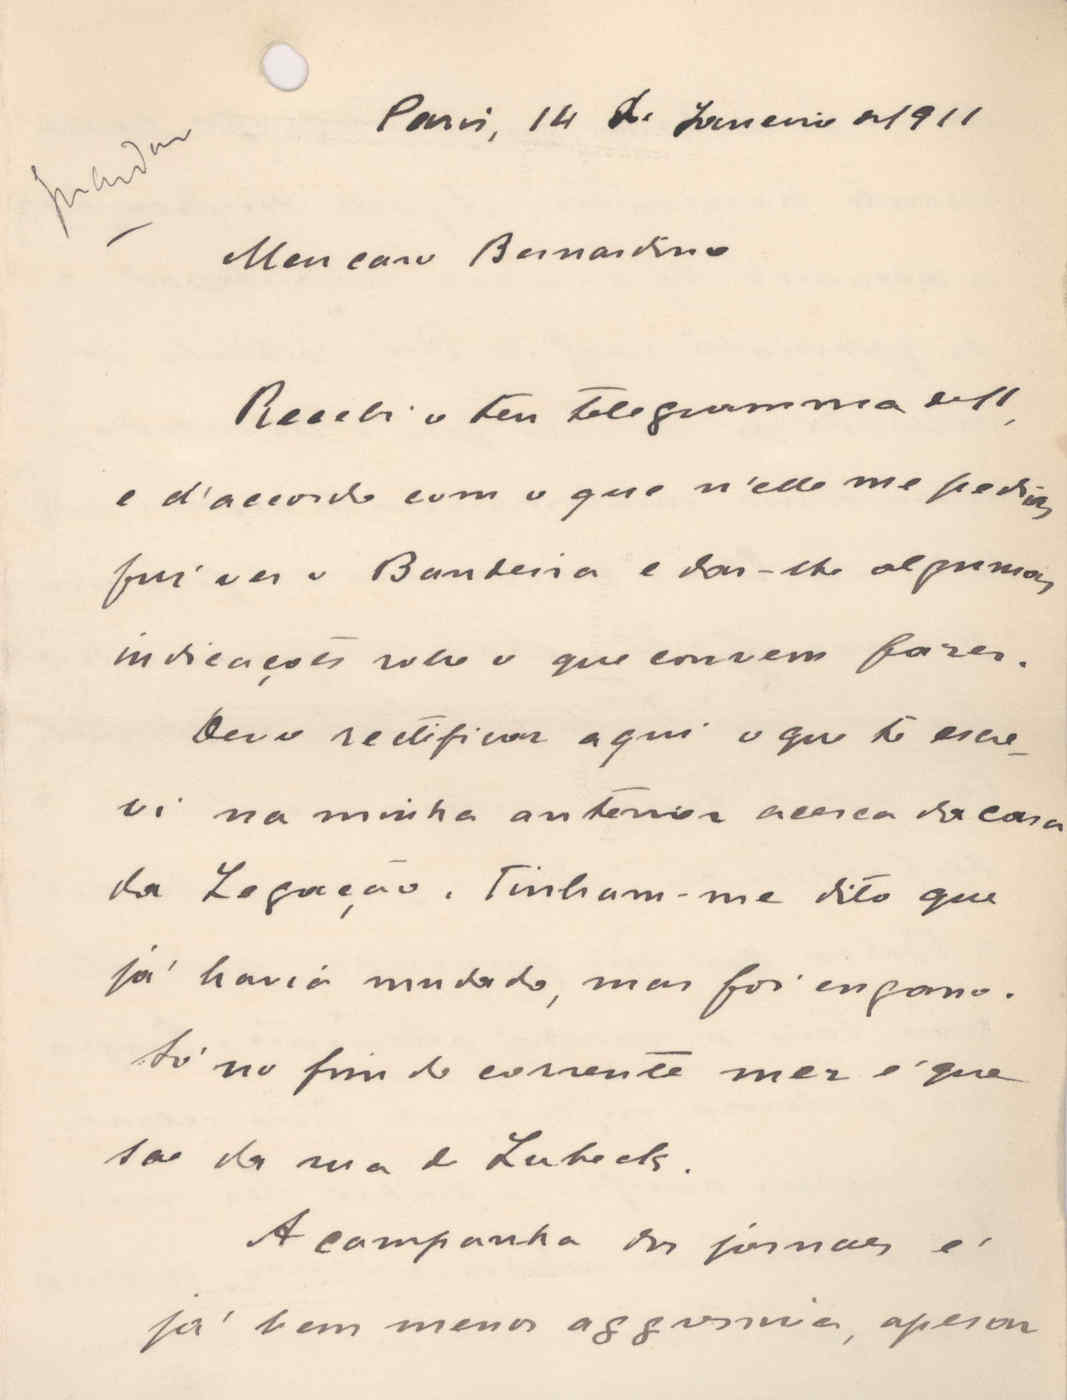 Paris, 14 de Janeiro de 1911
Guardar
Meu caro Bernardino
Recebi o teu telegramma de 11,
e d'accordo com o que n'elle me pedias
fui ver o Bandeira e dar-lhe algumas
indicações sobre o que convem fazer.
Devo rectificar aqui o que te escre-
vi na minha anterior acerca da casa
da Legação. Tinham-me dito que
já havia mudado, mas foi engano.
Só no fim do corrente mez é que
sae da rua de Lubeck.
A campanha dos jornaes é
já bem menos aggressiva, apesar